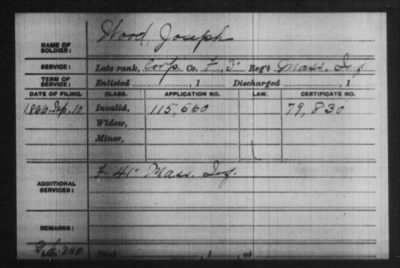 NAME OF SOLDIER: Wood, Joseph
SERVICE: Late rank, Corp. Co. F, 3" Reg't Mass. Inf.
TERM OF SERVICE: Enlisted , 1 Discharged , 1
DATE OF FILING. CLASS. APPLICATION NO. LAW. CERTIFICATE NO.
1866. Sep. 10 Invalid, 115,660 79,830
Widow,
Minor,
ADDITIONAL SERVICES: F 41" Mass. Inf.
REMARKS: